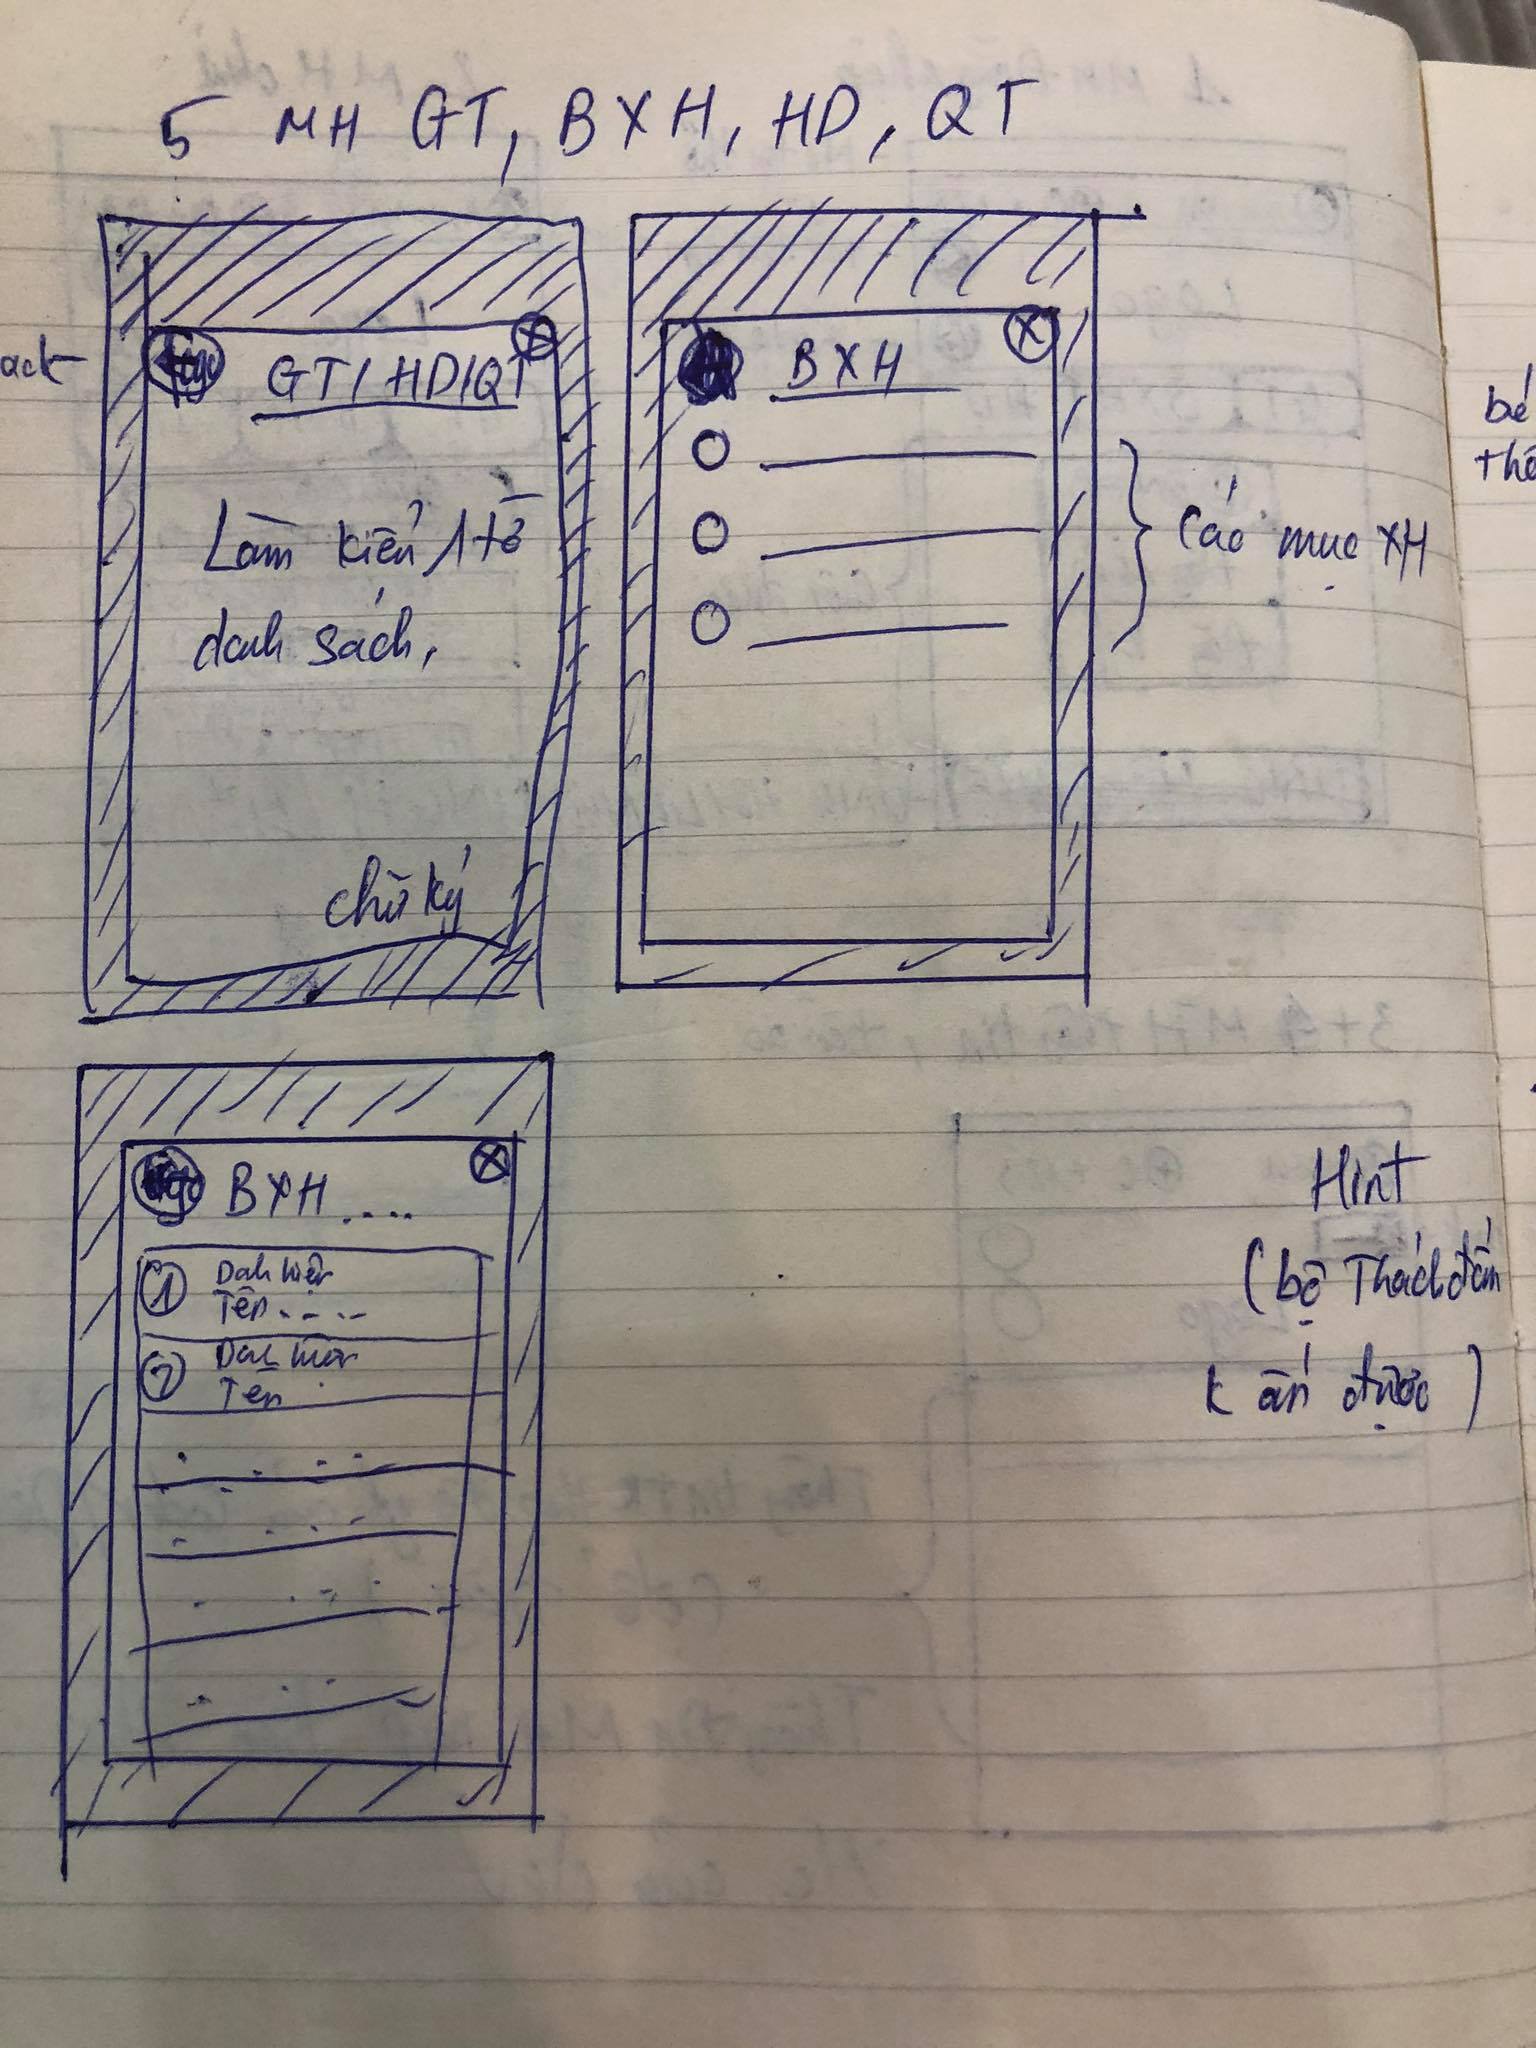 5 MH GT, BXH, HD, QT
GT/HD/QT
Làm kiểu 1 tờ
danh sách,
chữ ký
BXH
Các mục XH
bé
BXH....
1 Danh hiệu
Tên....
2 Danh hiệu
Tên
Hint
(bộ Thách đấm
k ấn được)